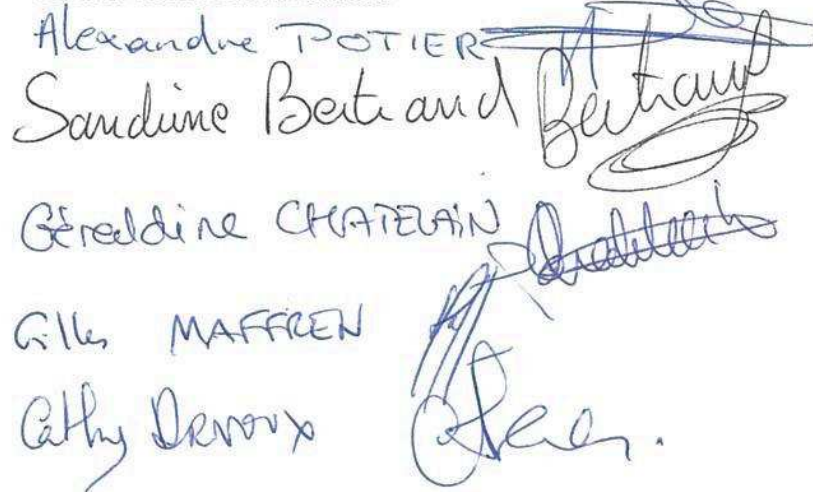 Alexandre POTIER
Sandrine Bertrand Bertrand
Géraldine CHATELAIN
Gilles MAFFREN
Cathy